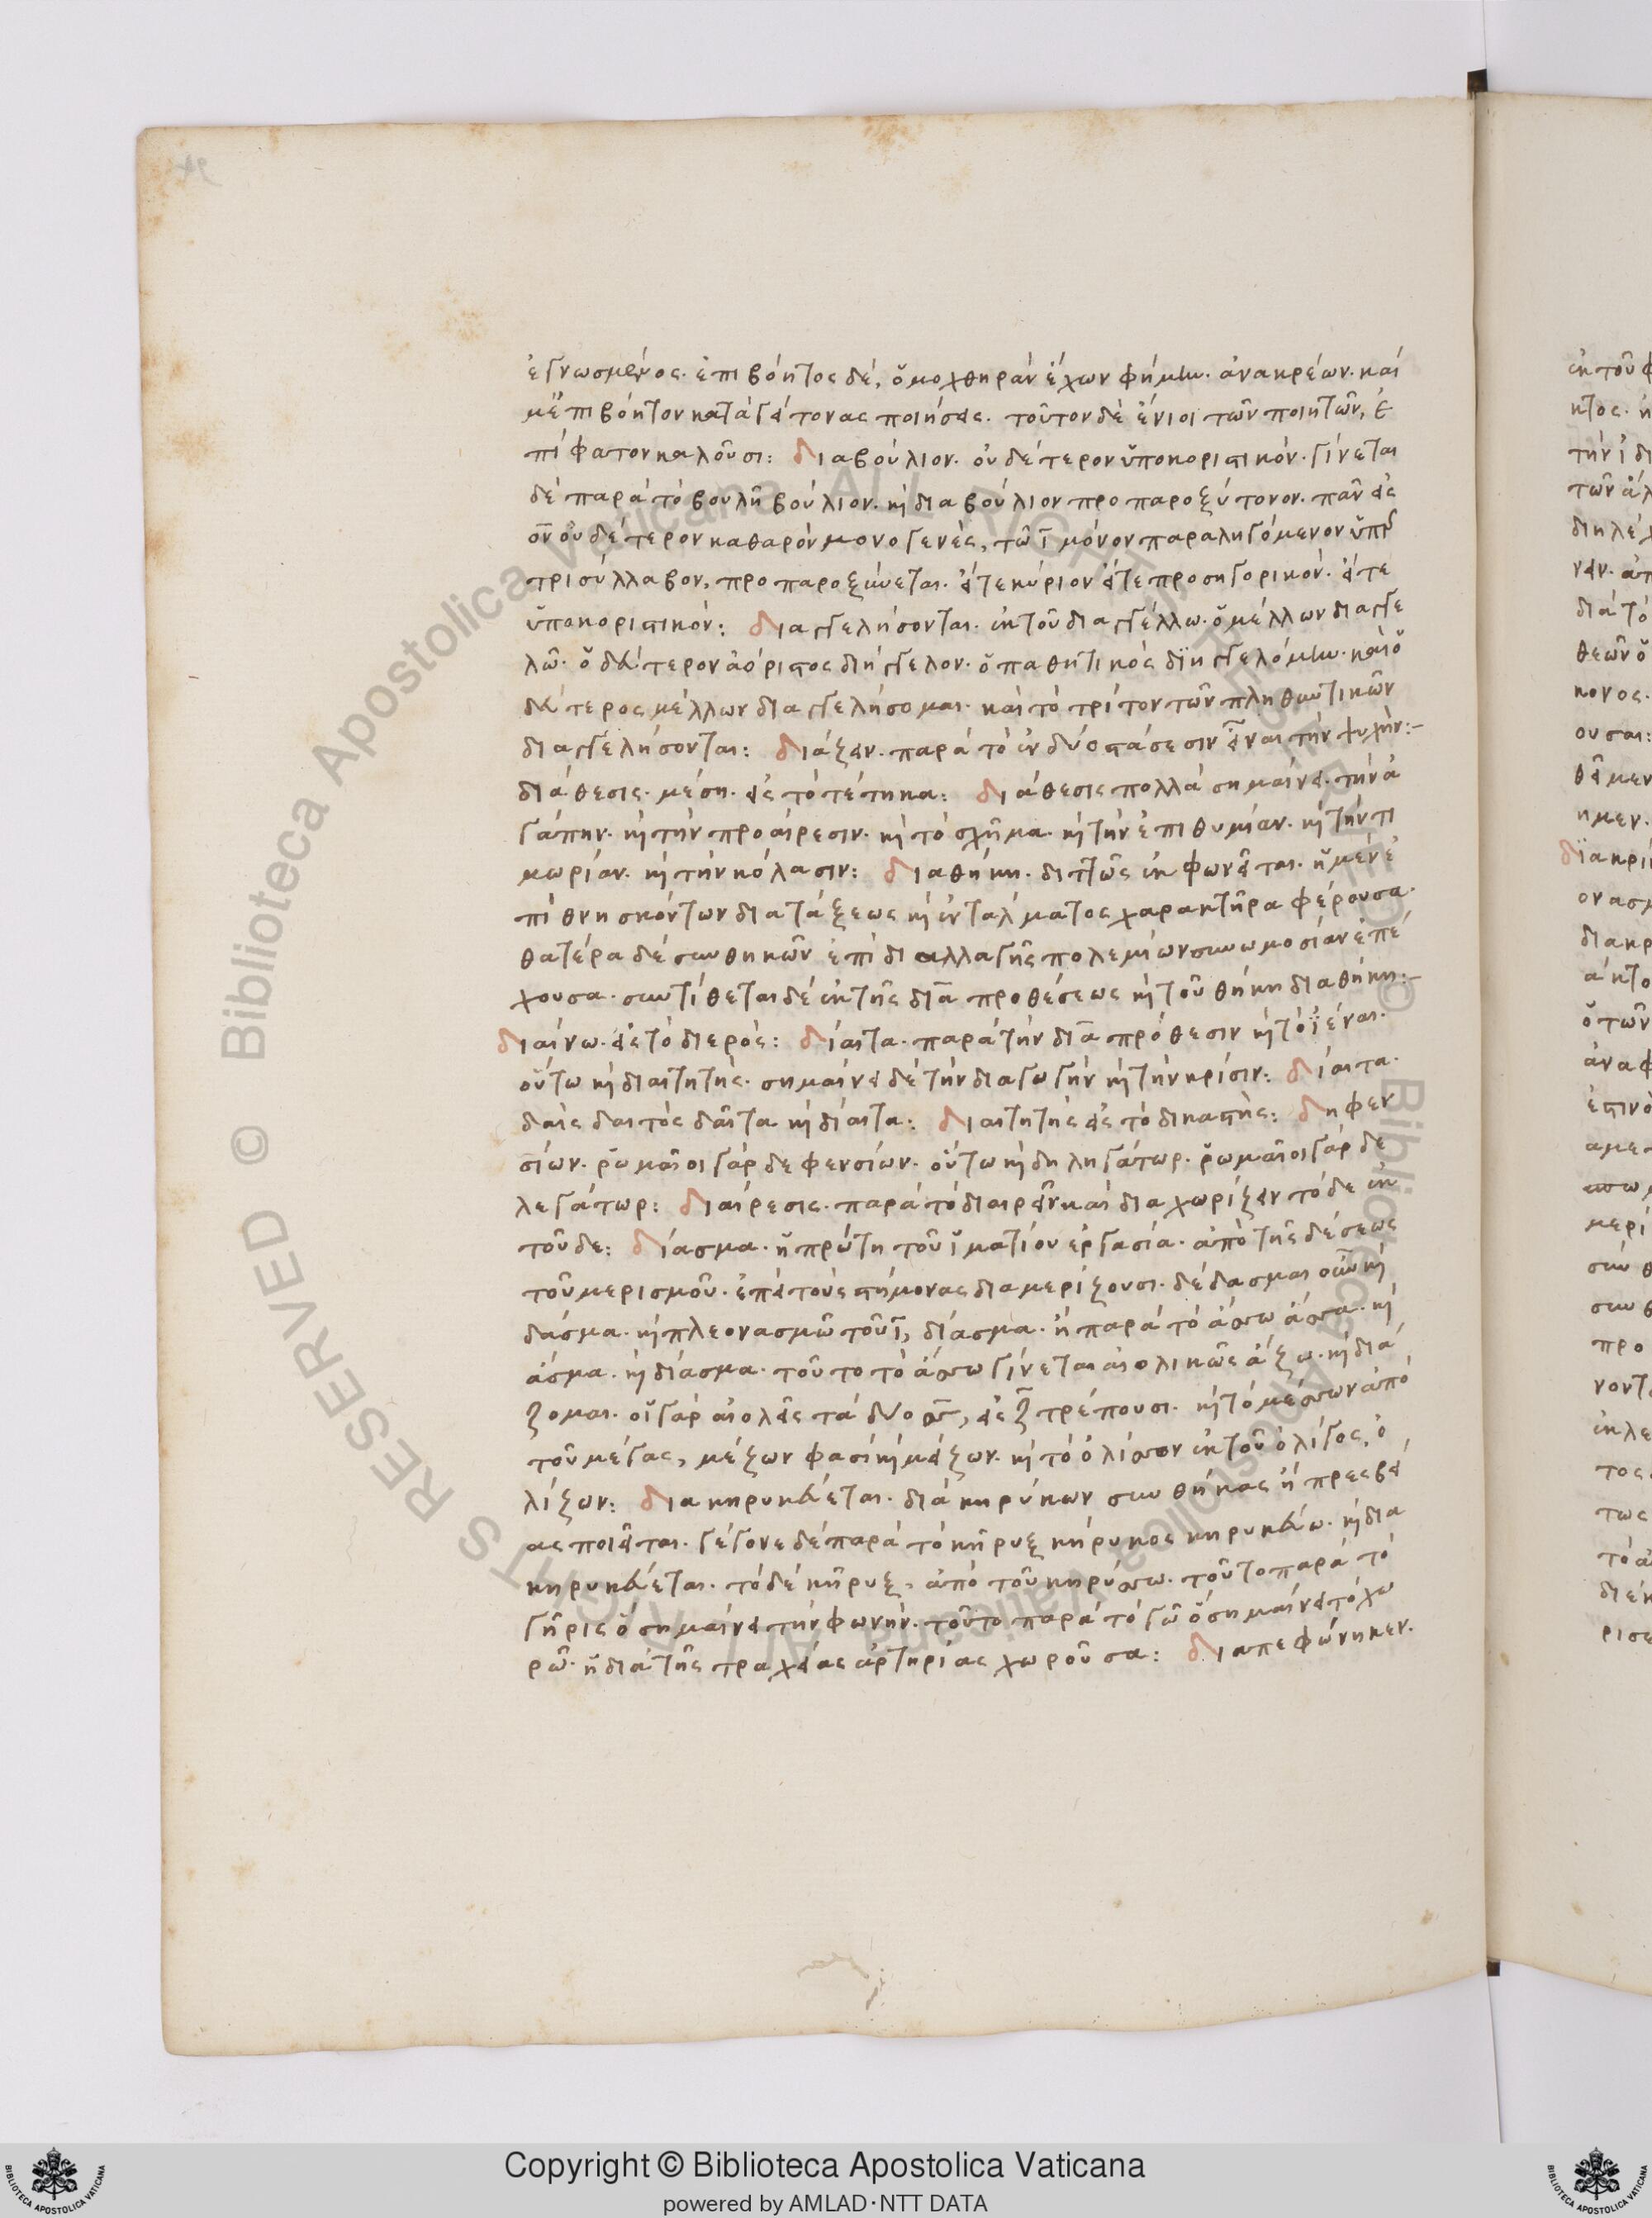 ἐγνωσμένος. ἐπιβόητος δέ, ὁ μοχθηρὰν ἔχων φήμην. ἀνακρέων. καί
μ' ἐπιβόητον κατὰ γείτονας ποιήσεις. τοῦτον δὲ ἔνιοι τῶν ποιητῶν, ἐ
πίφατον καλοῦσι: Διαβούλιον. οὐδέτερον ὑποκοριστικόν. γίνεται
δὲ παρὰ τὸ βουλὴ βούλιον. καὶ διαβούλιον προπαροξύτονον. πᾶν εἰς
ον οὐδέτερον καθαρὸν μονογενὲς, τῶ ι μόνον παραληγόμενον ὑπὲρ
τρισύλλαβον, προπαροξύνεται. εἴτε κύριον εἴτε προσηγορικόν. εἴτε
ὑποκοριστικόν: Διαγγελήσονται. ἐκ τοῦ διαγγέλλω. ὁ μέλλων διαγγε
λῶ. ὁ δεύτερον ἀόριστος διήγγελον. ὁ παθητικὸς διηγγελόμην. καὶ ὁ
δεύτερος μέλλων διαγγελήσομαι. καὶ τὸ τρίτον τῶν πληθυντικῶν
διαγγελήσονται: Διάζειν. παρὰ τὸ ἐν δύο στάσεσιν εἶναι τὴν ψυχήν:-
διάθεσις. μέση. εἰς τὸ τέτηκα: Διάθεσις πολλὰ σημαίνει. τὴν ἀ
γάπην. καὶ τὴν προαίρεσιν. καὶ τὸ σχῆμα. καὶ τὴν ἐπιθυμίαν. καὶ τὴν τι
μωρίαν. καὶ τὴν κόλασιν: Διαθήκη. διττῶς ἐκφωνεῖται. ἡ μὲν ἐ
πιθνησκόντων διατάξεως καὶ ἐντάλματος χαρακτῆρα φέρουσα.
θατέρα δὲ συνθηκῶν ἐπὶ διαλλαγῆς πολεμίων συνωμοσίαν ἐπέ
χουσα. συντίθεται δὲ ἐκ τῆς διὰ προθέσεως καὶ τοῦ θήκη διαθήκη:-
Διαίνω. εἰς τὸ διερός: Δίαιτα. παρὰ τὴν διὰ πρόθεσιν καὶ τὸ ἰέναι.
οὕτω καὶ διαιτητής. σημαίνει δὲ τὴν διαγωγήν καὶ τὴν κρίσιν: Δίαιτα.
δαὶς δαιτὸς δαῖτα καὶ δίαιτα: Διαιτητὴς εἰς τὸ δικαστής: Δηφεν
σίων. ῥωμαῖοι γὰρ δεφενσίων. οὕτω καὶ δηληγάτωρ. ῥωμαῖοι γὰρ δε
λεγάτωρ: Διαίρεσις. παρὰ τὸ διαιρεῖν καὶ διαχωρίζειν τόδε ἐκ
τοῦδε: Δίασμα. ἡ πρώτη τοῦ ἱματίου ἐργασία. ἀπὸ τῆς δέσεως
τοῦ μερισμοῦ. ἐπεὶ τοὺς στήμονας διαμερίζουσι. δέδασμαι οὖν καὶ
δάσμα. καὶ πλεονασμῶ τοῦ ι, δίασμα. ἢ παρὰ τὸ ἄσσω ἄσσα. καὶ
ἄσμα. καὶ δίασμα. τοῦτο τὸ ἄσσω γίνεται αἰολικῶς ἄζω. καὶ διά
ζομαι. οἱ γὰρ αἰολεῖς τὰ δύο σσ, εἰς ζ τρέπουσι. καὶ τὸ μέσσων ἀπὸ
τοῦ μέγας, μέζων φασὶ καὶ μείζων. καὶ τὸ ὀλίσσον ἐκ τοῦ ὀλίγος, ὀ
λίζων: Διακηρυκεύεται. διὰ κηρύκων συνθήκας ἢ πρεσβεί
ας ποιεῖται. γέγονε δὲ παρὰ τὸ κῆρυξ κήρυκος κηρυκεύω. καὶ δια
κηρυκεύεται. τὸ δὲ κῆρυξ, ἀπὸ τοῦ κηρύσσω. τοῦτο παρὰ τὸ
γῆρις ὃ σημαίνει τὴν φωνήν. τοῦτο παρὰ τὸ γῶ ὃ σημαίνει τὸ χω
ρῶ. ἡ διὰ τῆς τραχείας ἀρτηρίας χωροῦσα: Διαπεφώνηκεν.
Copyright © Biblioteca Apostolica Vaticana
powered by AMLAD·NTT DATA